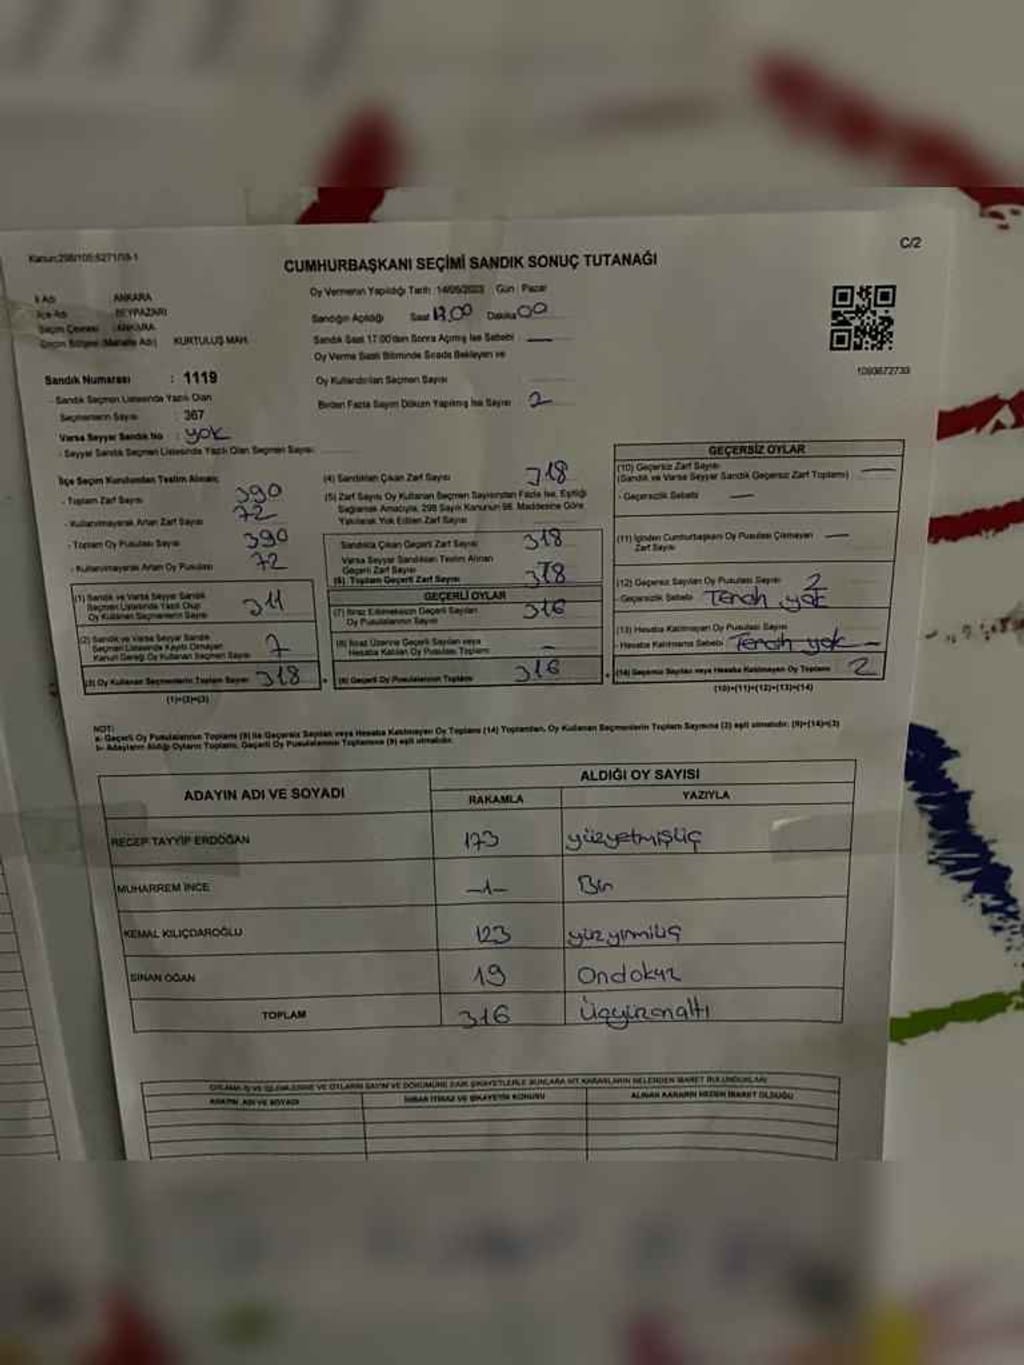 Kanun:298/105;6271/19-1
C/2
CUMHURBAŞKANI SEÇİMİ SANDIK SONUÇ TUTANAĞI
İl Adı ANKARA
İlçe Adı BEYPAZARI
Seçim Çevresi : ANKARA
Seçim Bölgesi (Mahalle Adı) KURTULUŞ MAH.
Sandık Numarası : 1119
- Sandık Seçmen Listesinde Yazılı Olan
Seçmenlerin Sayısı : 367
Varsa Seyyar Sandık No : yok
- Seyyar Sandık Seçmen Listesinde Yazılı Olan Seçmen Sayısı
Oy Vermenin Yapıldığı Tarih : 14/05/2023 Gün : Pazar
Sandığın Açıldığı Saat 17.00 Dakika 00
Sandık Saat 17.00'den Sonra Açılmış İse Sebebi : —
Oy Verme Saati Bitiminde Sırada Bekleyen ve
Oy Kullandırılan Seçmen Sayısı
Birden Fazla Sayım Döküm Yapılmış İse Sayısı 2
1093672733
İlçe Seçim Kurulundan Teslim Alınan;
- Toplam Zarf Sayısı 390
- Kullanılmayarak Artan Zarf Sayısı 72
- Toplam Oy Pusulası Sayısı 390
- Kullanılmayarak Artan Oy Pusulası 72
(1) Sandık ve Varsa Seyyar Sandık
Seçmen Listesinde Yazılı Olup
Oy Kullanan Seçmenlerin Sayısı 311
(2) Sandık ve Varsa Seyyar Sandık
Seçmen Listesinde Kayıtlı Olmayan
Kanun Gereği Oy Kullanan Seçmen Sayısı 7
(3) Oy Kullanan Seçmenlerin Toplam Sayısı 318
(1)+(2)=(3)
(4) Sandıktan Çıkan Zarf Sayısı 318
(5) Zarf Sayısı Oy Kullanan Seçmen Sayısından Fazla İse, Eşitliği
Sağlamak Amacıyla, 298 Sayılı Kanunun 98. Maddesine Göre
Yakılarak Yok Edilen Zarf Sayısı
Sandıkta Çıkan Geçerli Zarf Sayısı 318
Varsa Seyyar Sandıktan Teslim Alınan
Geçerli Zarf Sayısı
(6) Toplam Geçerli Zarf Sayısı 318
GEÇERLİ OYLAR
(7) İtiraz Edilmeksizin Geçerli Sayılan
Oy Pusulalarının Sayısı 316
(8) İtiraz Üzerine Geçerli Sayılan veya
Hesaba Katılan Oy Pusulası Toplamı —
(9) Geçerli Oy Pusulalarının Toplamı 316
GEÇERSİZ OYLAR
(10) Geçersiz Zarf Sayısı
(Sandık ve Varsa Seyyar Sandık Geçersiz Zarf Toplamı) —
- Geçersizlik Sebebi —
(11) İçinden Cumhurbaşkanı Oy Pusulası Çıkmayan
Zarf Sayısı —
(12) Geçersiz Sayılan Oy Pusulası Sayısı 2
- Geçersizlik Sebebi Tercih yok
(13) Hesaba Katılmayan Oy Pusulası Sayısı
- Hesaba Katılmama Sebebi Tercih yok —
(14) Geçersiz Sayılan veya Hesaba Katılmayan Oy Toplamı 2
(10)+(11)+(12)+(13)=(14)
NOT:
a- Geçerli Oy Pusulalarının Toplamı (9) ile Geçersiz Sayılan veya Hesaba Katılmayan Oy Toplamı (14) Toplamları, Oy Kullanan Seçmenlerin Toplam Sayısına (3) eşit olmalıdır. (9)+(14)=(3)
b- Adayların Aldığı Oyların Toplamı, Geçerli Oy Pusulalarının Toplamına (9) eşit olmalıdır.
ADAYIN ADI VE SOYADI
ALDIĞI OY SAYISI
RAKAMLA YAZIYLA
RECEP TAYYİP ERDOĞAN 173 yüzyetmişüç
MUHARREM İNCE —1— Bir
KEMAL KILIÇDAROĞLU 123 yüzyirmiüç
SİNAN OĞAN 19 Ondokuz
TOPLAM 316 Üçyüzonaltı
İTİRAZ VE ŞİKAYETİN KONUSU
ALINAN KARARIN NEDEN İBARET OLDUĞU